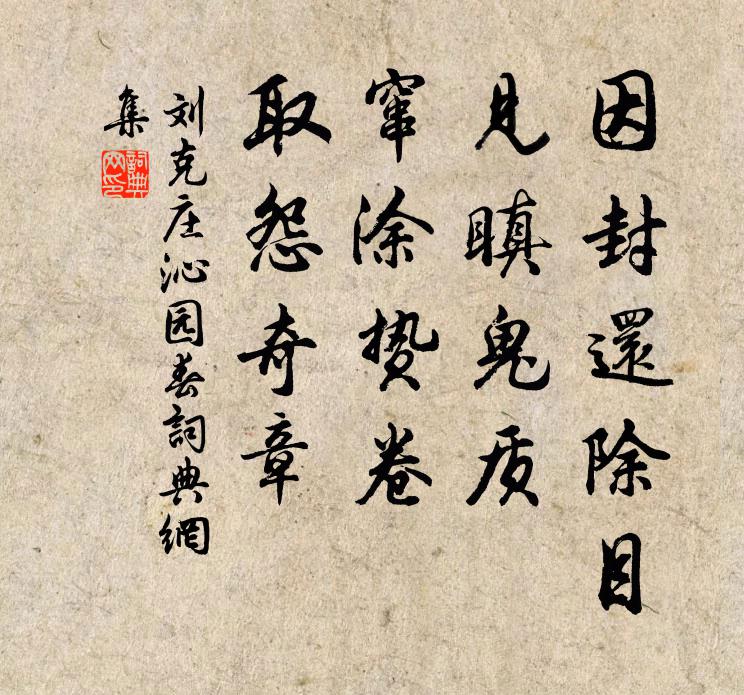 因封還除目
见瞋鬼质
窜涂贽卷
取怨奇章
刘克庄沁园春詞典網
集
詞典网印